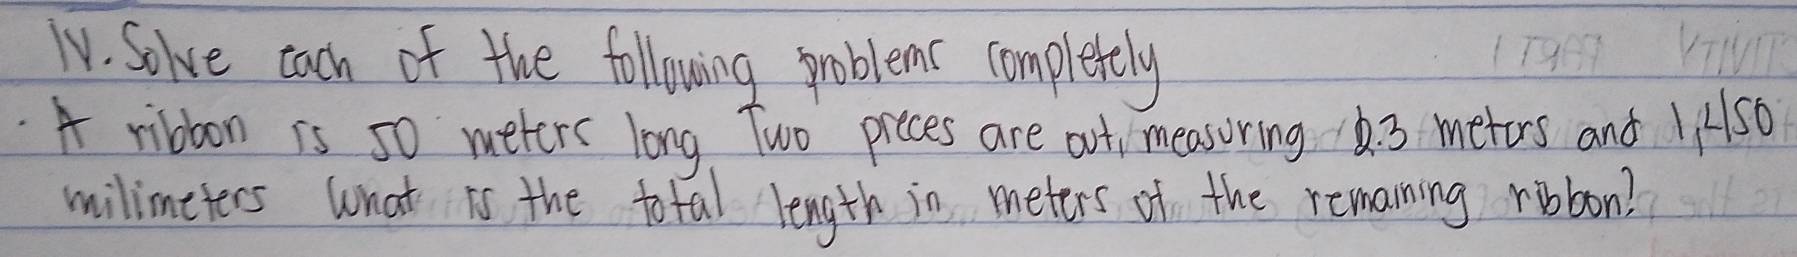 IV. Solve each of the following problems completely
. A ribbon is 50 meters long Two pieces are out, measuring 2.3 meters and 1,450
milimeters What is the total length in meters of the remaining ribbon?